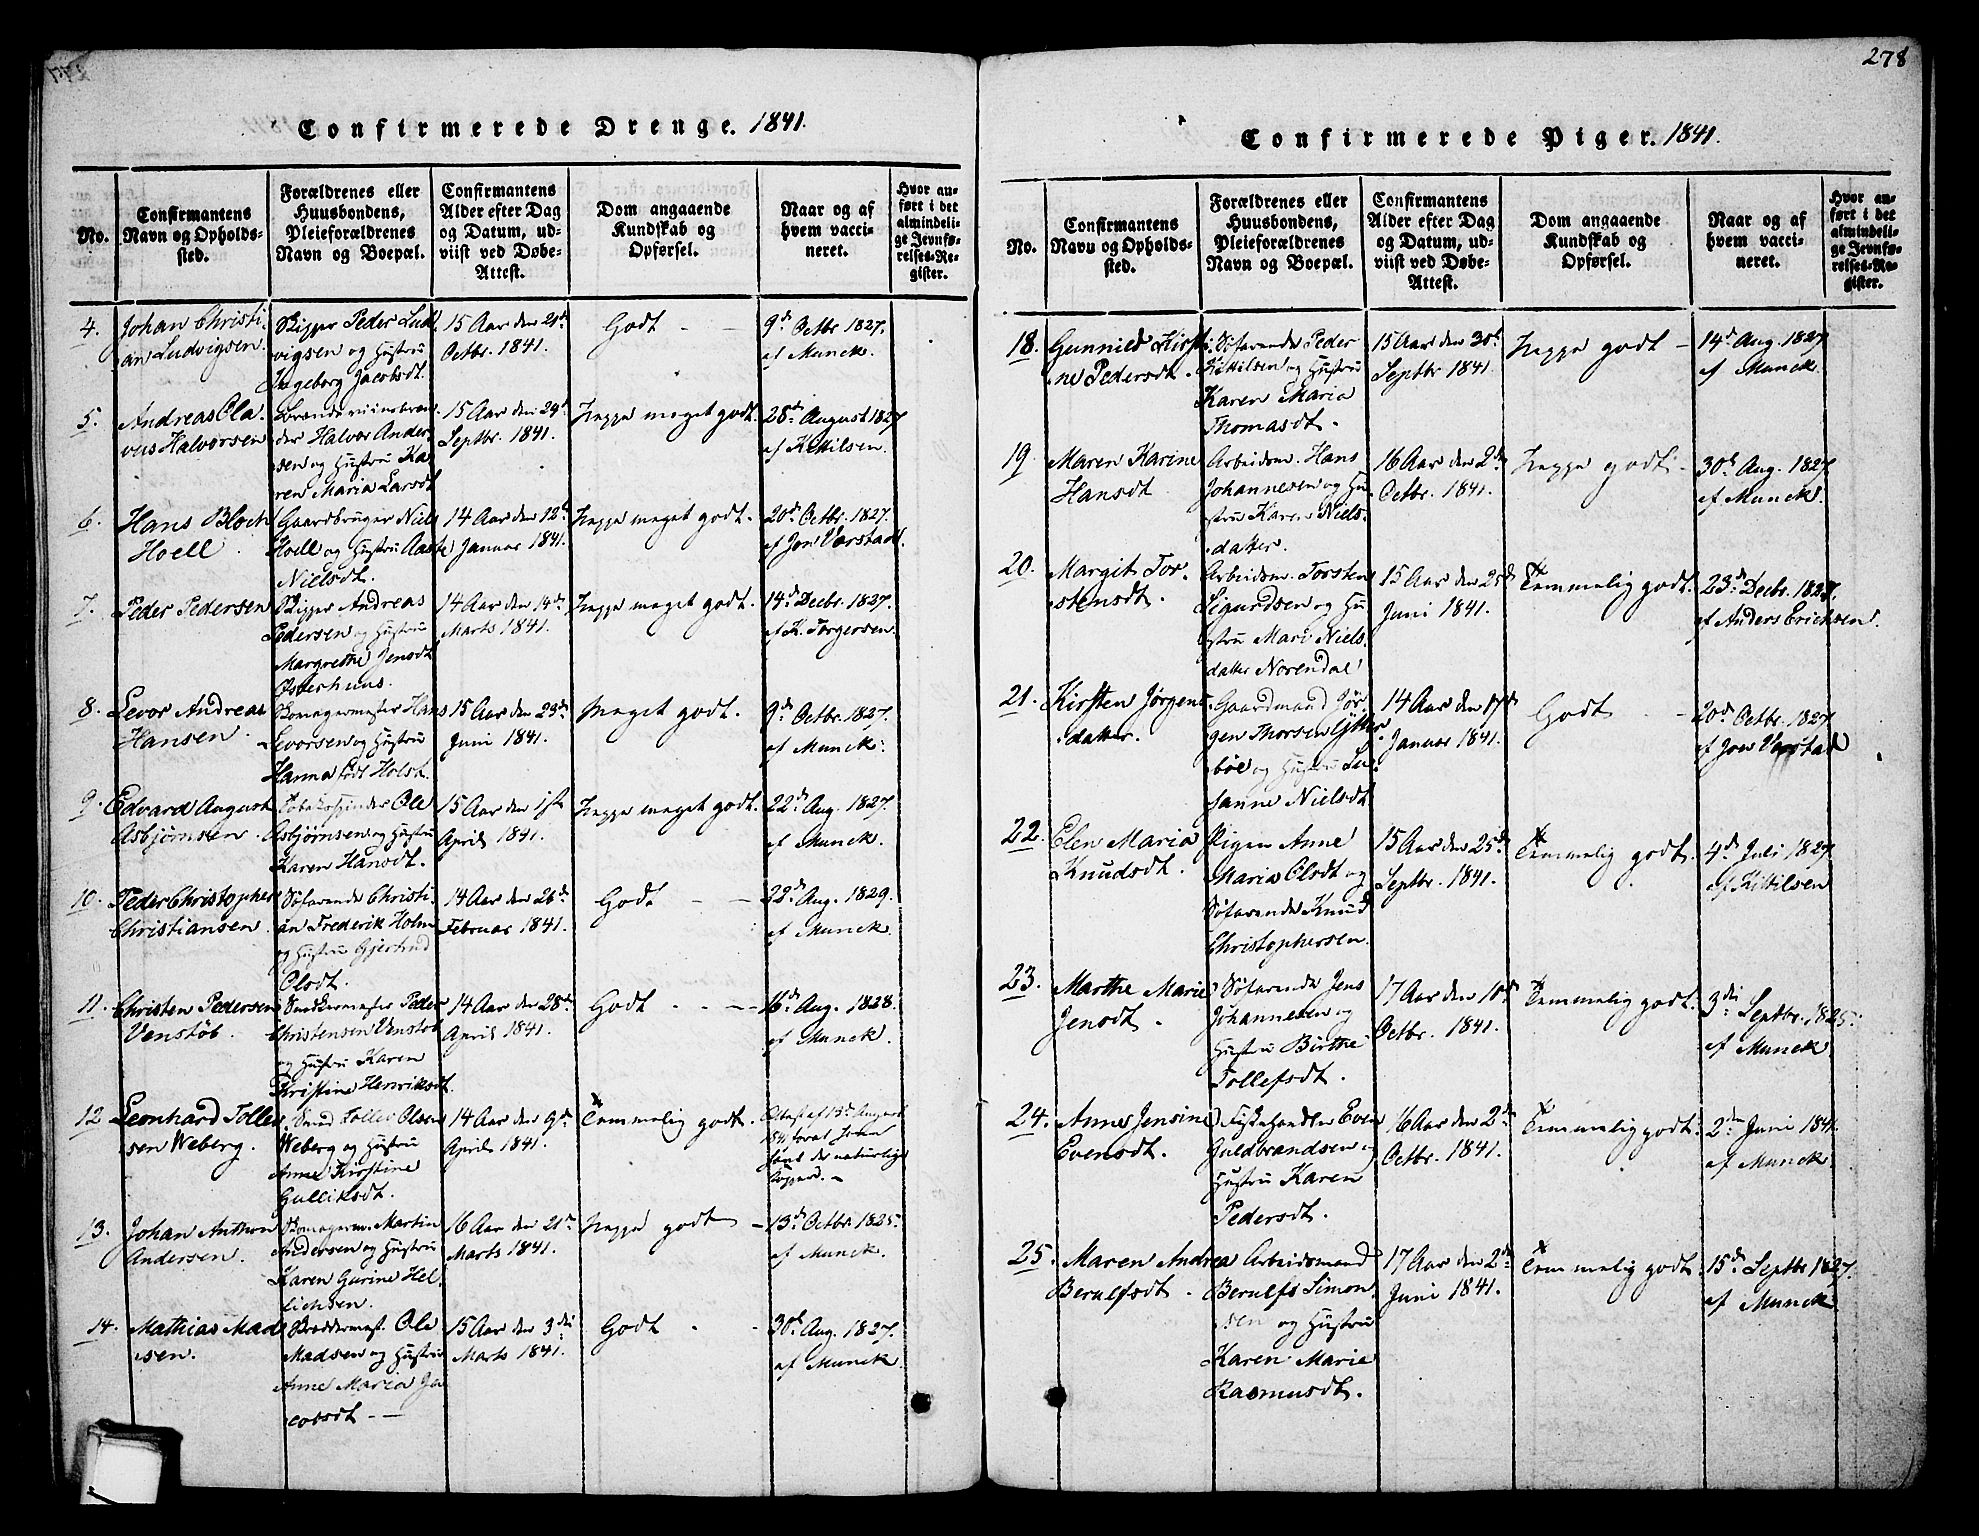 278
Confirmerede Drenge. 1841.
No.
Confirmantens
Navn og Opholds-
sted.
Forældrenes eller
Huusbondens,
Pleieforældrenes
Navn og Boepæl.
Confirmantens
Alder efter Dag
og Datum, ud-
viist ved Døbe-
Attest.
Dom angaaende
Kundskab og
Opførsel.
Naar og af
hvem vacci-
neret.
Hvor an-
ført i det
almindeli-
ge Jevnfø-
relses-Re-
gister.
4.
Johan Christi-
an Ludvigsen.
Rigger Peder Lud
vigsen og Hustru
Ingeborg Jacobsdt.
15 Aar den 21de
Octbr. 1841.
Godt
9de Octbr 1827.
af Munck.
5.
Andreas Ola
vus Halvorsen
Brændeviinsbræn
der Halvor Ander
sen og Hustru Ka
ren Maria Larsdt
15 Aar den 29de
Septbr. 1841.
meget godt.
28de August 1827
af Kittilsen.
6.
Hans Bloch
Hoell.
Gaardbruger Niels
Hoell og Hustru Aaste
Nielsdt.
14 Aar den 12te
Januar 1841.
meget godt.
20de Octbr. 1827.
af Jon Varstad.
7.
Peder Pedersen
Rigger Andreas
Pedersen og Hustru
Margrethe Jensdt
Østerhuus.
14 Aar den 14de
Marts 1841.
meget godt.
14de Decbr. 1827.
af K. Torgersen.
8.
Levor Andreas
Hansen.
Hans
Levorsen og Hustru
Hanna født Holst.
15 Aar den 23de
Juni 1841.
Meget godt.
9de Octbr. 1827.
af Munck.
9.
Edvard August
Asbjørnsen.
Tobakspinder Ole
Asbjørnsen og Hustru
Karen Hansdt.
15 Aar den 1ste
April 1841.
meget godt.
22de Aug. 1827.
af Munck.
10.
Peder Christopher
Christiansen.
Søfarende Christi
an Frederik Holm
og Hustru Gjertrud
Olsdt.
14 Aar den 26de
Februar 1841.
Godt
22de Aug. 1829.
af Munck.
11.
Christen Pedersen
Venstøb.
Snedkermester Peder
Christensen Venstøb
og Hustru Karen
Kristine Henriksdt.
14 Aar den 28de
April 1841.
Godt
16de Aug. 1828.
af Munck.
12
Leonhard Tolle
sen Weberg.
Smed Tollef Olsen
Weberg og Hustru
Anne Kirstine
Gulliksdt.
14 Aar den 9de
April 1841.
Temmelig godt.
Attest af 15de August
1841
de naturlige
13.
Johan Anthon
Andersen.
Martin
Andersen og Hustru
Karen Gurine Hel
lichsen.
16 Aar den 21de
Marts 1841.
godt
13de Octbr. 1825.
af Munck.
14.
Mathias Mad
sen.
Ole
Madsen og Hustru
Anne Maria Ja
cobsdt
15 Aar den 3die
Marts 1841.
Godt
30de Aug. 1827.
af Munck.
Confirmerede Piger. 1841.
No.
Confirmantens
Navn og Opholds-
sted.
Forældrenes eller
Huusbondens,
Pleieforældrenes
Navn og Boepæl.
Confirmantens
Alder efter Dag
og Datum, ud-
viist ved Døbe-
Attest.
Dom angaaende
Kundskab og
Opførsel.
Naar og af
hvem vacci-
neret.
Hvor an-
ført i det
almindeli-
ge Jevnfø-
relses-Re-
gister.
18.
Gunnild Kirsti-
ne Pedersdt.
Søfarende Peder
Kittilsen og Hustru
Karen Maria
Thomasdt.
15 Aar den 30te
Septbr 1841.
godt
14de Aug. 1827
af Munck.
19.
Maren Karine
Hansdt.
Arbeidsm. Hans
Johannesen og Hu
stru Karen Niels-
datter.
16 Aar den 2den
Octbr. 1841.
godt
30te Aug. 1827.
af Munck.
20.
Margit Tor-
stensdt.
Arbeidsm. Torsten
Sigurdsen og Hu
stru Mari Niels
datter Norendal
15 Aar den 25de
Juni 1841.
Temmelig godt.
23de Decbr. 1827.
af Anders Erichsen.
21.
Kirsten Jørgens-
datter.
Gaardmand Jør-
gen Thorsen Ytter
bøe og Hustru Su-
sanne Nielsdt.
14 Aar den 17de
Januar 1841.
Godt
20de Octbr. 1827.
af Jon Varstad
22.
Elen Maria
Knudsdt.
Pigen Anne
Maria Olsdt og
Søfarende Knud
Christophersen.
15 Aar den 25de
Septbr. 1841.
Temmelig godt.
4de Juli 1827.
af Kittilsen
23.
Marthe Marie
Jensdt.
Søfarende Jens
Johannesen og
Hustru Birthe
Tollefsdt.
17 Aar den 10de
Octbr. 1841.
Temmelig godt.
3die Septbr. 1825.
af Munck
24.
Anne Jensine
Evensdt.
Fiskehandler Even
Guldbrandsen og
Hustru Karen
Pedersdt.
16 Aar den 2de
Octbr. 1841.
Temmelig godt.
2den Juni 1841.
af Munck.
25.
Maren Andrea
Berulfsdt.
Arbeidsmand
Berulfs Simon
sen og Hustru
Karen Marie
Rasmusdt.
17 Aar den 2de
Juni 1841.
Temmelig godt.
15de Septbr 1827.
af Munck